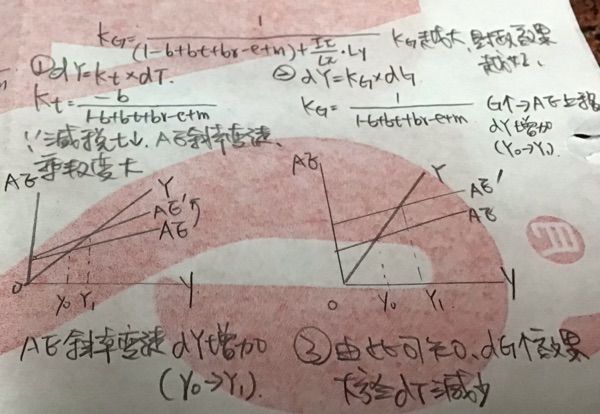 KG = 1 / (1-b+bt+br-e+m)+Ir/Lr·Ly KG越大，財政效果越大。
① dY=Kt×dT.
Kt = -b / 1-b+bt+br-e+m
∵減稅t↓. AE斜率變陡，
乘數變大
② dY=KG×dG
KG = 1 / 1-b+bt+br-e+m G↑→AE上移
dY增加
(Y0→Y1)
AE
Y
AE'
AE
0 Y0 Y1 Y
AE
Y
AE'
AE
0 Y0 Y1 Y
AE斜率變陡 dY增加
(Y0→Y1)
③由此可知、dG↑效果
dT減少
m